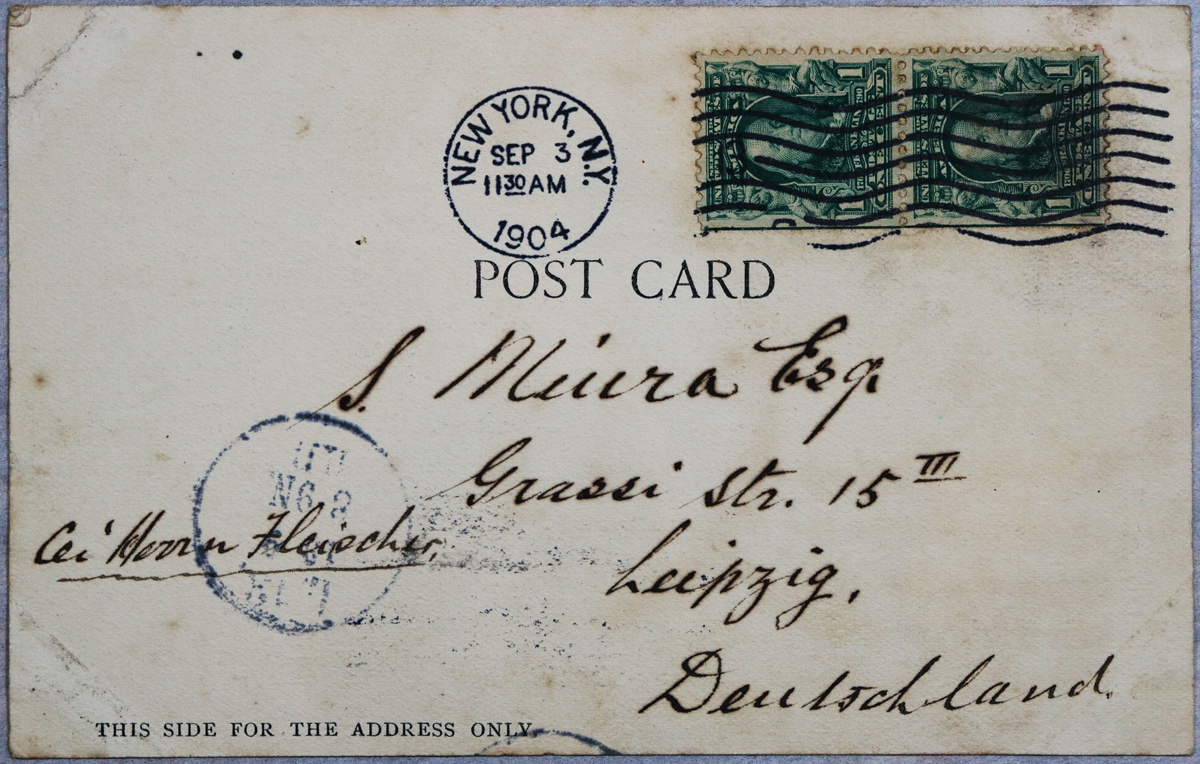 NEW YORK, N.Y.
SEP 3
11 30 AM
1904
POST CARD
S. Miura Esq
Grassi Str. 15 III
Leipzig,
Deutschland.
bei Herrn Fleischer,
THIS SIDE FOR THE ADDRESS ONLY.